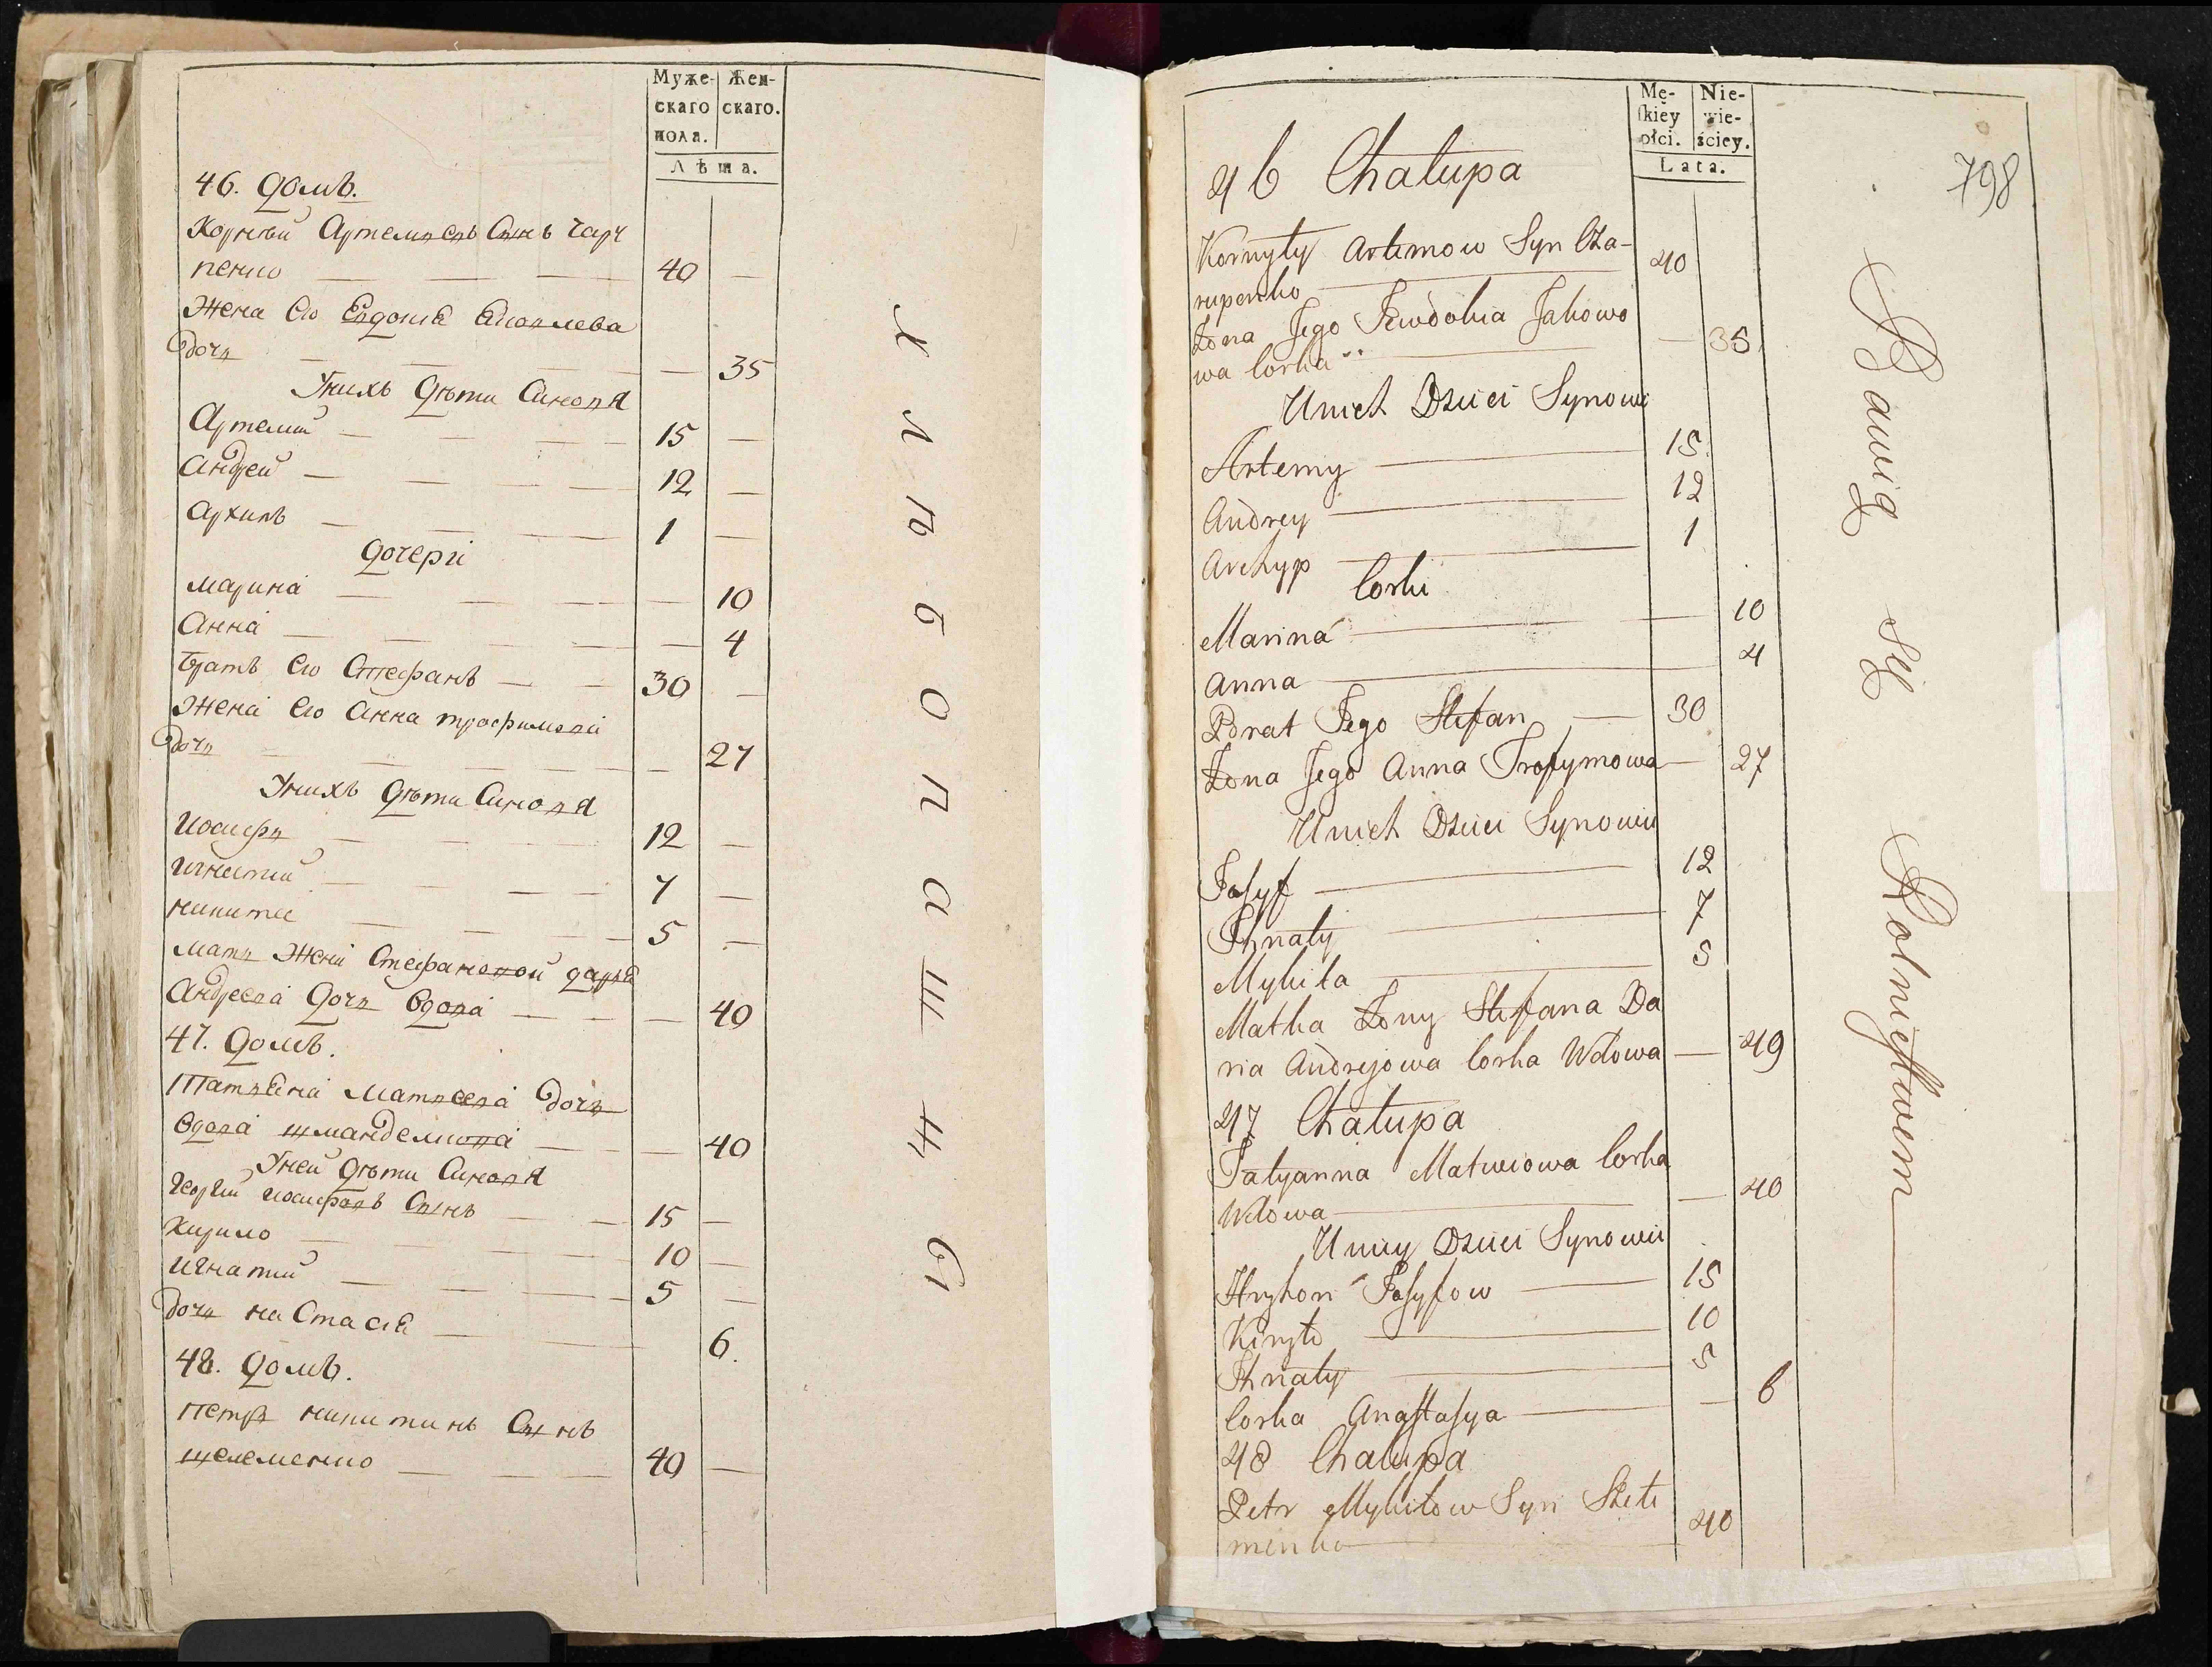 Муже- Жен-
скаго скаго.
пола.
Лѣта.
46. домъ.
Корнѣй Артемиевъ Синъ Чару
пенко 40
Жена Его Евдокіѣ Яковлева
дочь 35
У нихъ дѣти Синовя
Артемий 15
Андрей 12
Архипъ 1
дочери
Марина 10
Анна 4
Братъ Его Стефанъ 30
Жена Его Анна Трофимова
дочь 27
У нихъ дѣти Синовя
Иосифъ 12
Игнатий 7
Никита 5
Мать Жены Стефановой дарья
Андреева дочь вдова 49
47. домъ.
Татьяна Матвеева дочь
вдова 40
У ней дѣти Синовя
Георгий иосифовъ Синъ 15
Кирило 10
Игнатий 5
дочь на Стасия 6.
48. домъ.
Петръ никитинъ Сынъ
щелеменко 40
Хлѣбопашчс
Mę- Nie-
skiey wie-
płci. ściey.
Lata.
798
46 Chałupa
Kornyły Artemow Syn Cza-
rupenko 40
Żona Jego Jewdokia Jakowo
wa Corka 35
U nich Dzieci Synowie
Artemy 15
Andrey 12
Archyp 1
Corki
Marina 10
Anna 4
Brat Jego Stefan 30
Żona Jego Anna Trofymowa 27
U nich Dzieci Synowie
Josyf 12
Ihnaty 7
Mykita 5
Matka Żony Stefana Da
ria Andrejowa Corka Wdowa 49
47 Chałupa
Tatyanna Matwiowa Corka
Wdowa 40
U niey Dzieci Synowie
Hryhori Josyfow 15
Kiryło 10
Ihnaty 5
Corka Anastasya 6
48 Chałupa
Petr Mykitow Syn Szele
menko 40
Bawią się Rolnictwem